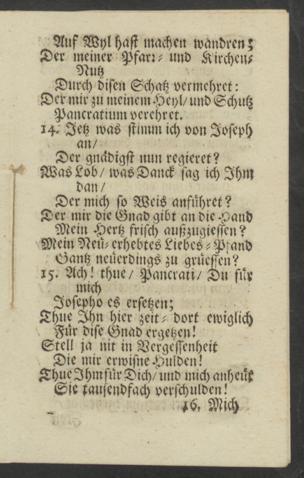 Auf Wyl hast machen wandren;
Der meiner Pfarr- und Kirchen-
Nutz
Durch disen Schatz vermehret:
Der mir zu meinem Heyl/ und Schutz
Pancratium verehret.
14. Jetz was stimm ich von Joseph
an/
Der gnädigst nun regieret?
Was Lob/ was Danck sag ich Ihm
dan/
Der mich so Weis anführet?
Der mir die Gnad gibt an die Hand
Mein Hertz frisch außzugiessen?
Mein Neü-erhebtes Liebes-Pfand
Gantz neüerdings zu grüessen?
15. Ach! thue/ Pancrati/ Du für
mich
Josepho es ersetzen;
Thue Ihn hier zeit- dort ewiglich
Für dise Gnad ergetzen!
Stell ja nit in Vergessenheit
Die mir erwisne Hulden!
Thue Ihm für Dich/ und mich anheüt
Sie tausendfach verschulden!
16. Mich